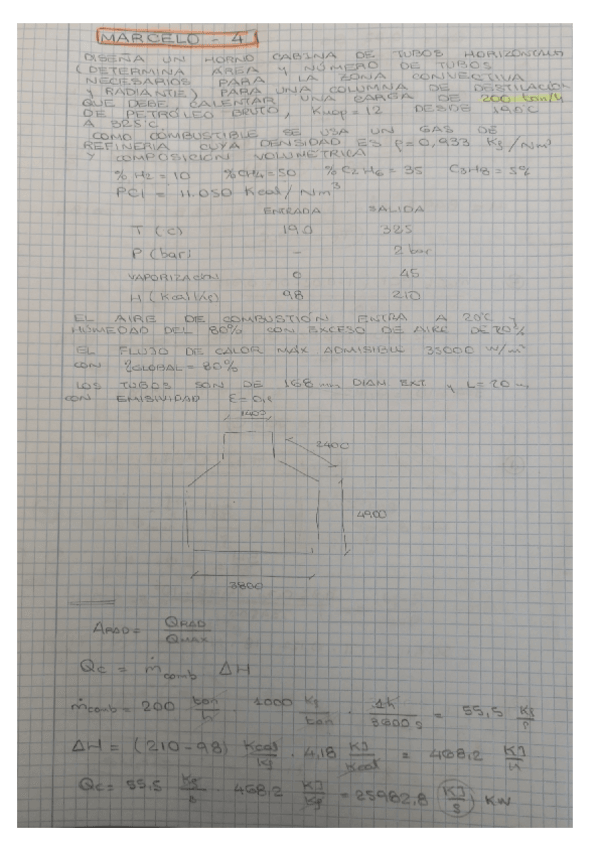 MARCELO - 4
DISEÑA UN HORNO CABINA DE TUBOS HORIZONTALES
(DETERMINA AREA Y NÚMERO DE TUBOS
NECESARIOS PARA LA ZONA CONVECTIVA
Y RADIANTE) PARA UNA COLUMNA DE DESTILACION
QUE DEBE CALENTAR UNA CARGA DE 200 ton/h
DE PETRÓLEO BRUTO, Kuop = 12 DESDE 190°C
A 325°C
COMO COMBUSTIBLE SE USA UN GAS DE
REFINERIA CUYA DENSIDAD ES ρ = 0,933 Kg/Nm³
Y COMPOSICION VOLUMETRICA
% H2 = 10 % CH4 = 50 % C2H6 = 35 C3H8 = 5%
PCI = 11.050 Kcal/Nm³
ENTRADA SALIDA
T (C) 190 325
P (bar) - 2 bar
VAPORIZACION 0 45
H (Kcal/Kg) 98 210
EL AIRE DE COMBUSTION ENTRA A 20°C Y
HUMEDAD DEL 80% CON EXCESO DE AIRE DE 20%
EL FLUJO DE CALOR MAX ADMISIBLE 35000 W/m²
CON GLOBAL = 80%
LOS TUBOS SON DE 168 mm DIAM EXT Y L = 20 m
CON EMISIVIDAD
2400
4900
3800
ARAD = QRAD / QMAX
Qc = ṁcomb ΔH
ṁcomb = 200 ton/h · 1000 Kg/ton · 1h/3600 s = 55,5 Kg/s
ΔH = (210 - 98) Kcal/Kg · 4,18 KJ/Kcal = 468,2 KJ/K
Qc = 55,5 Kg/s · 468,2 KJ/Kg = 25982,8 (KJ/s) KW